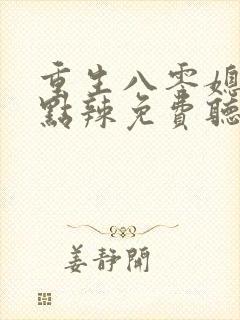 重生八零媳
點辣免費聽
姜靜開